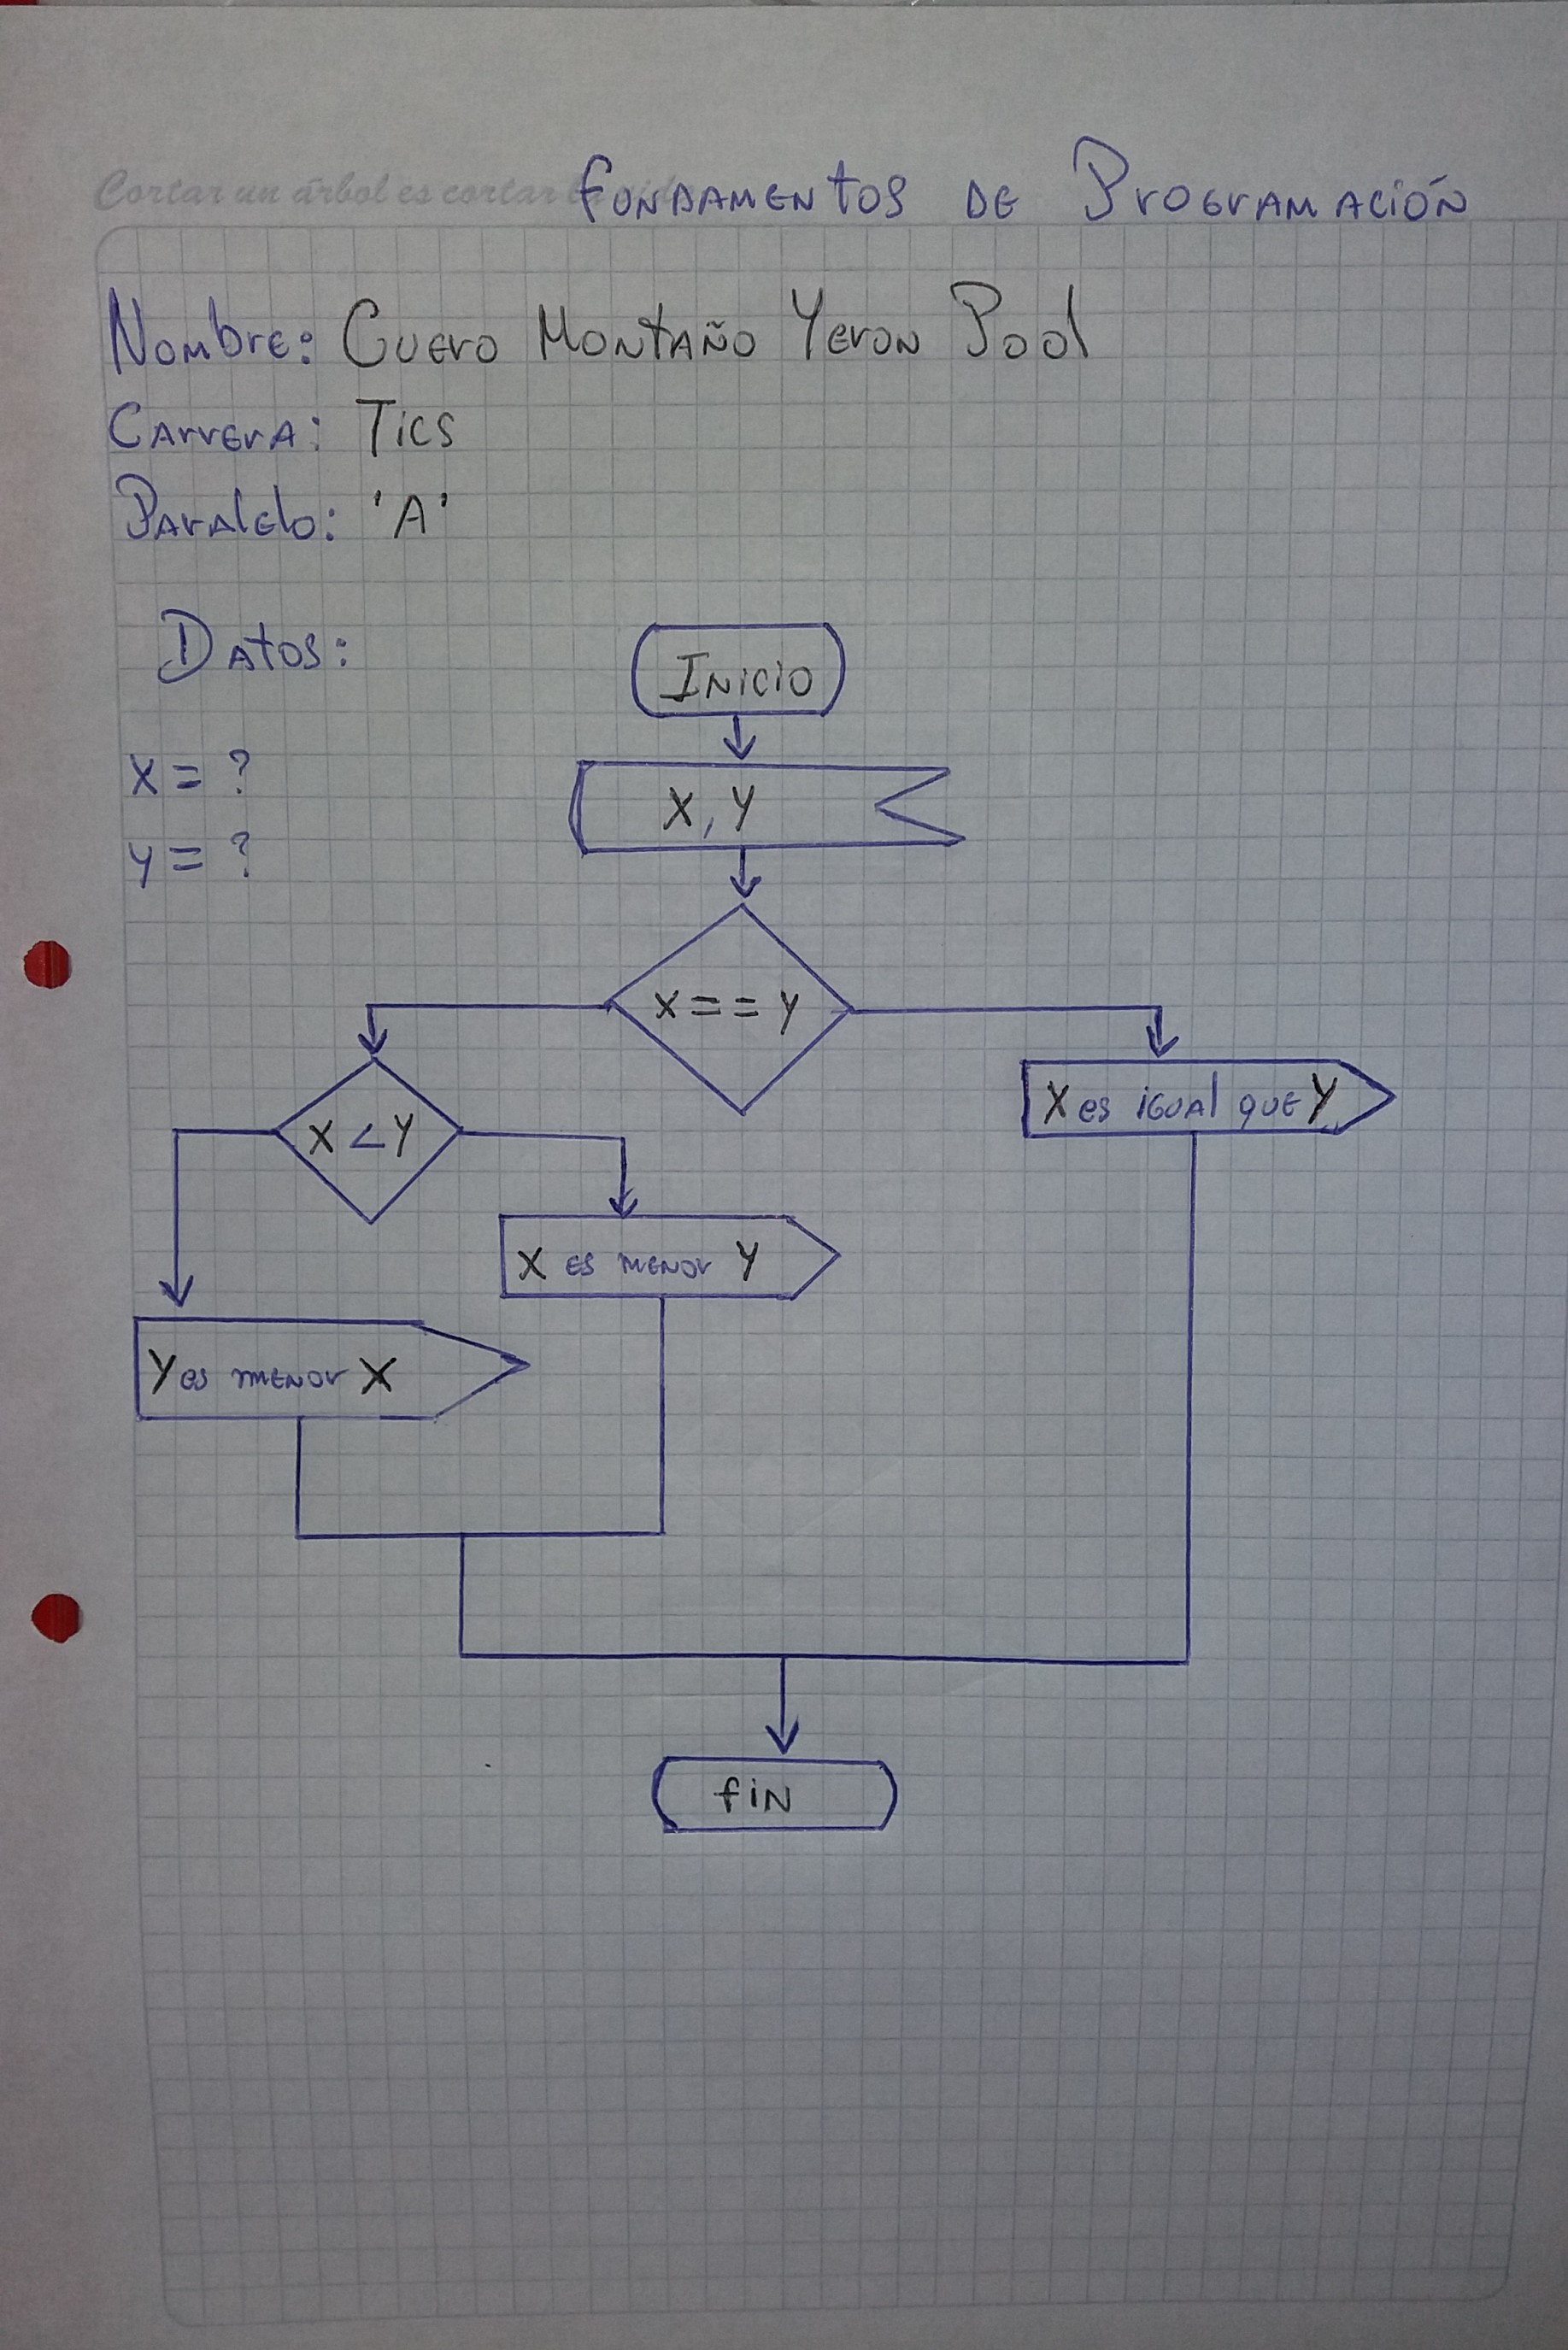 Cortar un árbol es cortar
Fundamentos de Programación
Nombre: Cuero Montaño Yeron Pool
Carrera: Tics
Paralelo: 'A'
Datos:
Inicio
X = ?
X, Y
y = ?
X == Y
X es igual que Y
X < Y
X es menor Y
Y es menor X
fin